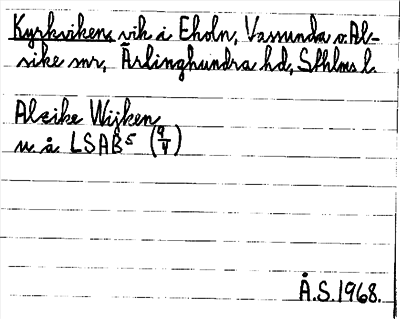 Kyrkviken, vik i Ekoln, Vassunda o. Al-
sike snr, Ärlinghundra hd, Sthlms l.
Alsike Wijken
u. å LSAB5 (9/4)
Å.S. 1968.